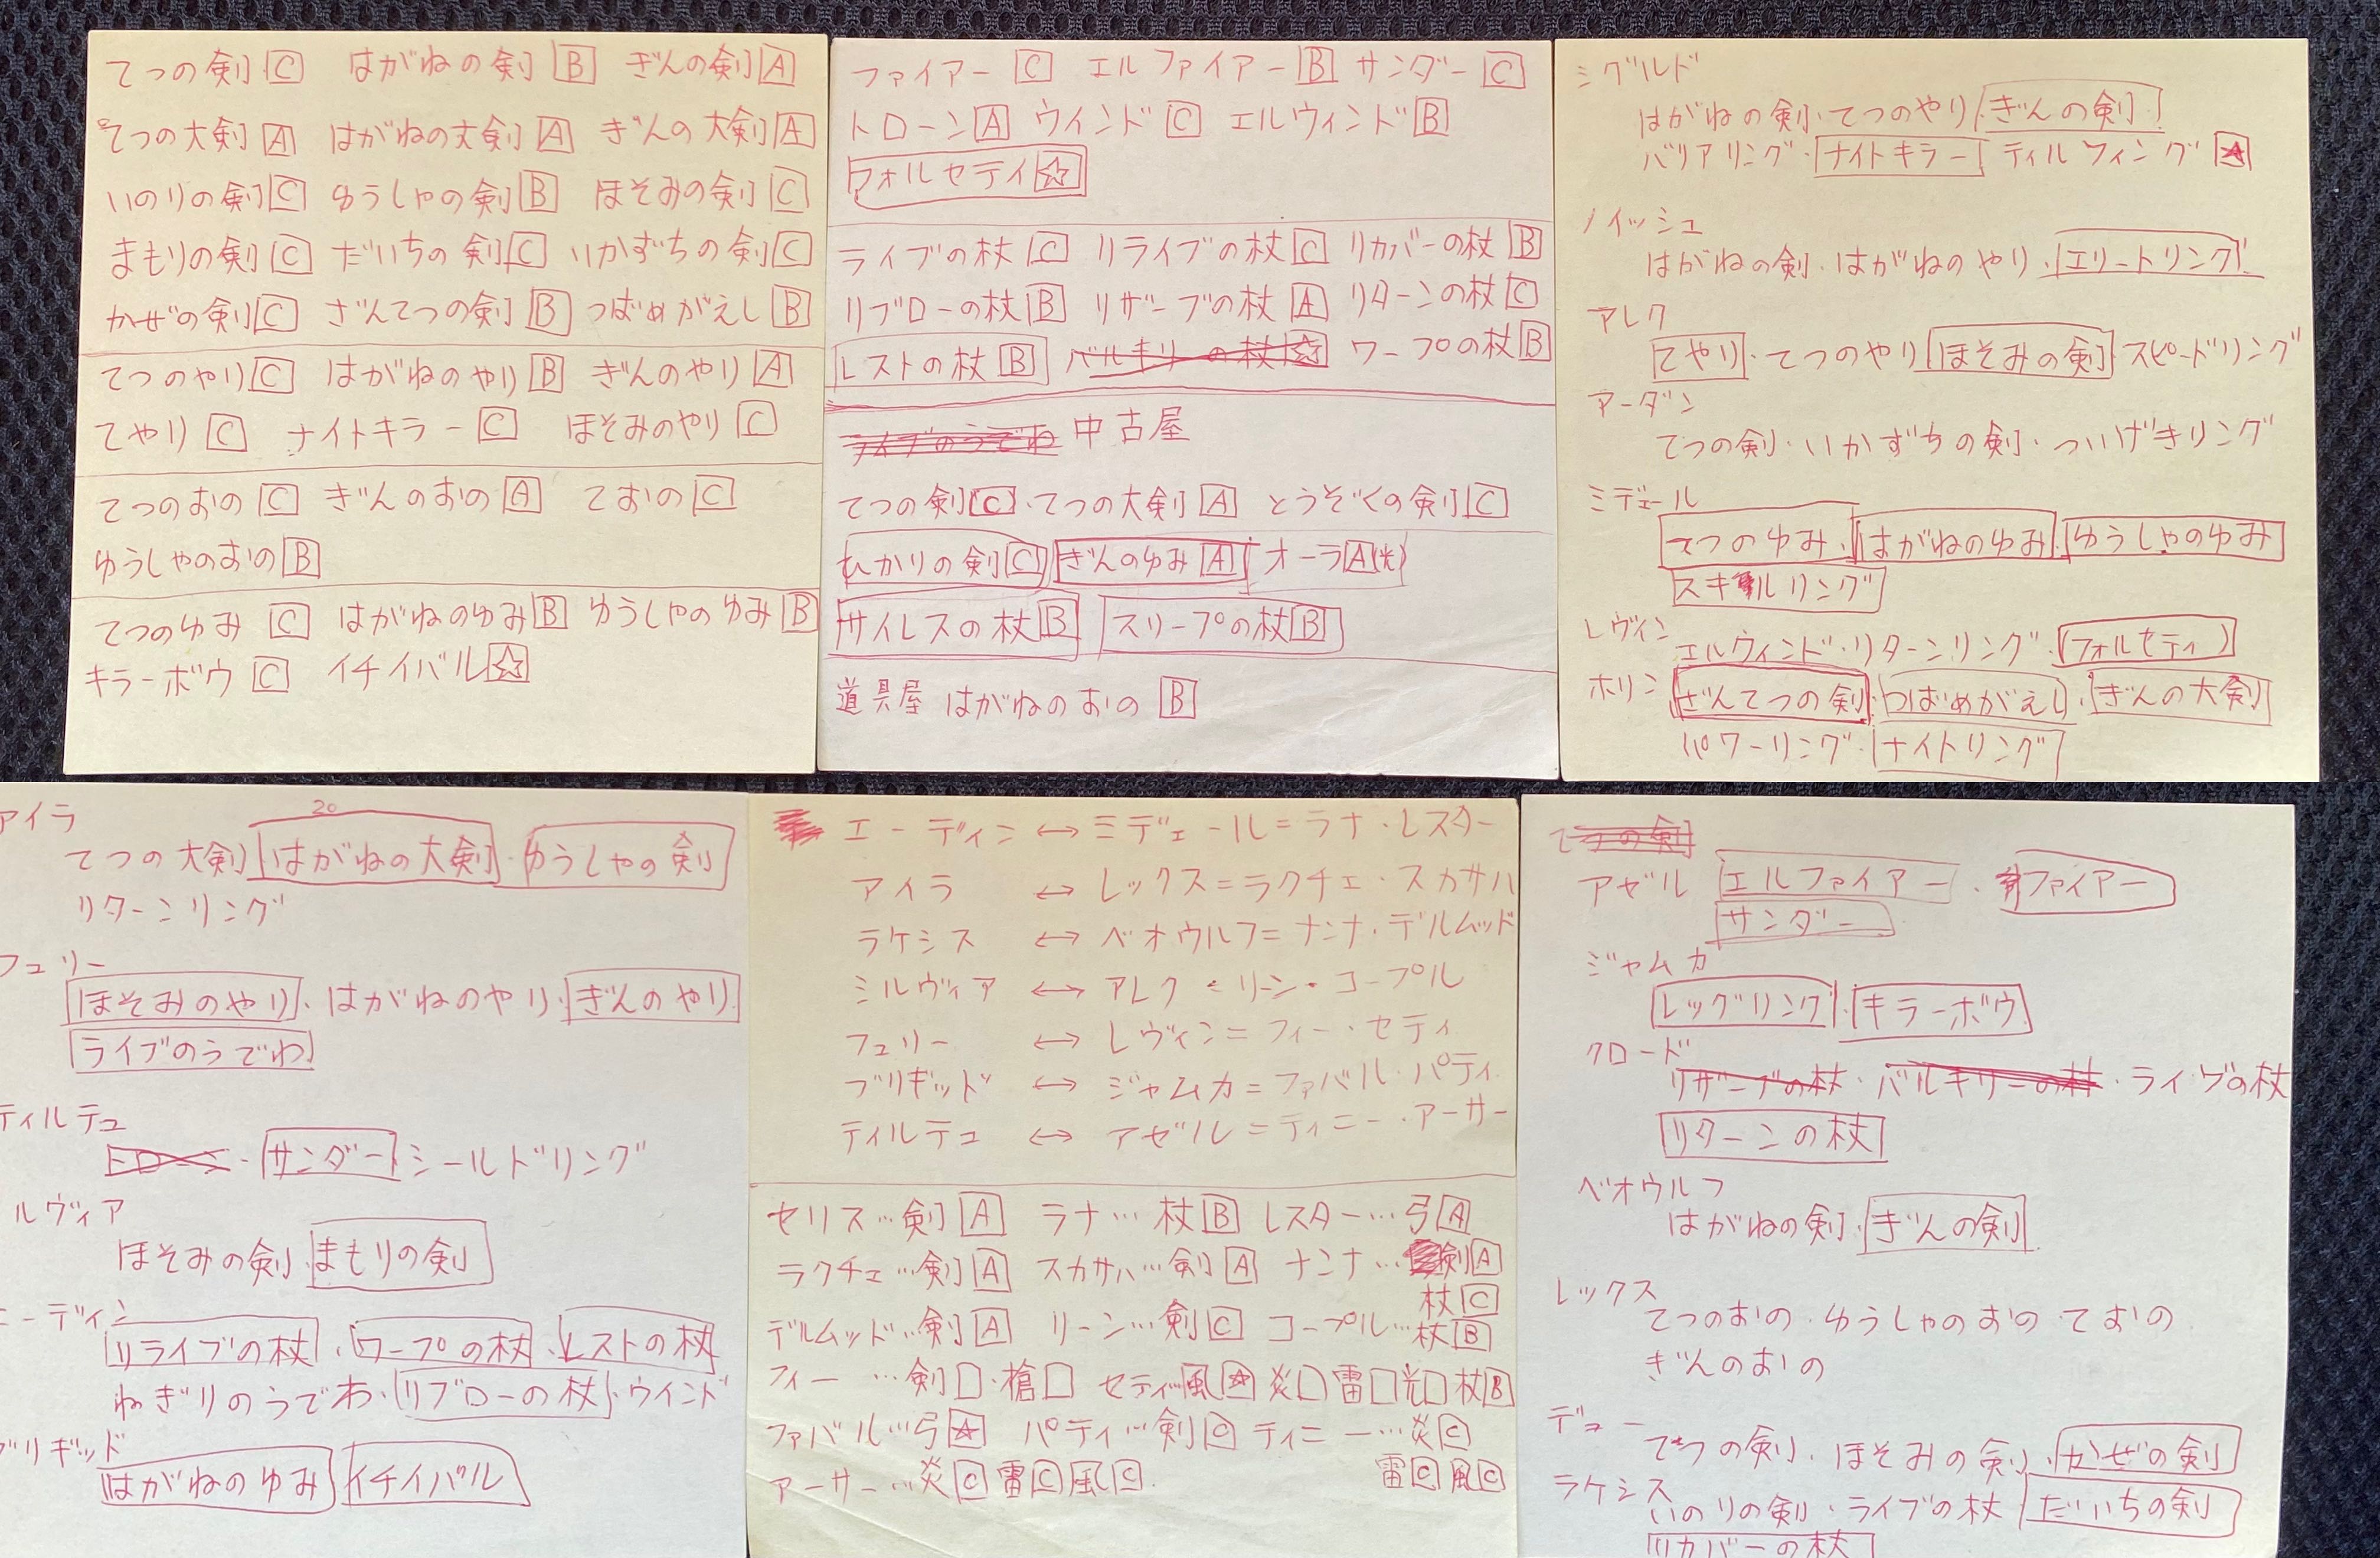 てつの剣 C はがねの剣 B ぎんの剣 A
てつの大剣 A はがねの大剣 A ぎんの大剣 A
いのりの剣 C ゆうしゃの剣 B ほそみの剣 C
まもりの剣 C だいちの剣 C いかずちの剣 C
かぜの剣 C ざんてつの剣 B つばめがえし B
てつのやり C はがねのやり B ぎんのやり A
てやり C ナイトキラー C ほそみのやり C
てつのおの C ぎんのおの A ておの C
ゆうしゃのおの B
てつのゆみ C はがねのゆみ B ゆうしゃのゆみ B
キラーボウ C イチイバル ☆
ファイアー C エルファイアー B サンダー C
トローン A ウインド C エルウィンド B
フォルセティ ☆
ライブの杖 C リライブの杖 C リカバーの杖 B
リブローの杖 B リザーブの杖 A リターンの杖 C
レストの杖 B バルキリーの杖 ☆ ワープの杖 B
ライブのうでわ 中古屋
てつの剣 C・てつの大剣 A とうぞくの剣 C
ひかりの剣 C ぎんのゆみ A オーラ A (光)
サイレスの杖 B スリープの杖 B
道具屋 はがねのおの B
シグルド
はがねの剣・てつのやり・ぎんの剣・
バリアリング・ナイトキラー ティルフィング ☆
ノイッシュ
はがねの剣・はがねのやり・エリートリング
アレク
てやり・てつのやり ほそみの剣 スピードリング
アーダン
てつの剣・いかずちの剣・ついげきリング
ミデェール
てつのゆみ・はがねのゆみ・ゆうしゃのゆみ
スキルリング
レヴィン
エルウィンド・リターンリング・フォルセティ
ホリン
ざんてつの剣・つばめがえし・ぎんの大剣
パワーリング・ナイトリング
アイラ
20
てつの大剣 はがねの大剣・ゆうしゃの剣
リターンリング
フュリー
ほそみのやり・はがねのやり・ぎんのやり
ライブのうでわ
ティルテュ
トローン・サンダー シールドリング
ルヴィア
ほそみの剣 まもりの剣
ーディン
リライブの杖・ワープの杖・レストの杖
ねぎりのうでわ・リブローの杖・ウインド
ブリギッド
はがねのゆみ イチイバル
エーディン ↔ ミデェール=ラナ・レスター
アイラ ↔ レックス=ラクチェ・スカサハ
ラケシス ↔ ベオウルフ=ナンナ・デルムッド
ミルヴィア ↔ アレク=リーン・コープル
フュリー ↔ レヴィン=フィー・セティ
ブリギッド ↔ ジャムカ=ファバル・パティ
ティルテュ ↔ アゼル=ティニー・アーサー
セリス…剣 A ラナ…杖 B レスター…弓 A
ラクチェ…剣 A スカサハ…剣 A ナンナ…剣 A
杖 C
デルムッド…剣 A リーン…剣 C コープル…杖 B
フィー…剣□・槍□ セティ…風 ☆ 炎□ 雷□ 光□ 杖 B
ファバル…弓 ☆ パティ…剣 C ティニー…炎 C
アーサー…炎 C 雷 C 風 C 雷 C 風 C
てつの剣
アゼル エルファイアー・ファイアー
サンダー
ジャムカ
レッグリング・キラーボウ
クロード
リザーブの杖・バルキリーの杖・ライブの杖
リターンの杖
ベオウルフ
はがねの剣・ぎんの剣
レックス
てつのおの・ゆうしゃのおの・ておの
ぎんのおの
デュー
てつの剣・ほそみの剣・かぜの剣
ラケシス
いのりの剣・ライブの杖 だいちの剣
リカバーの杖